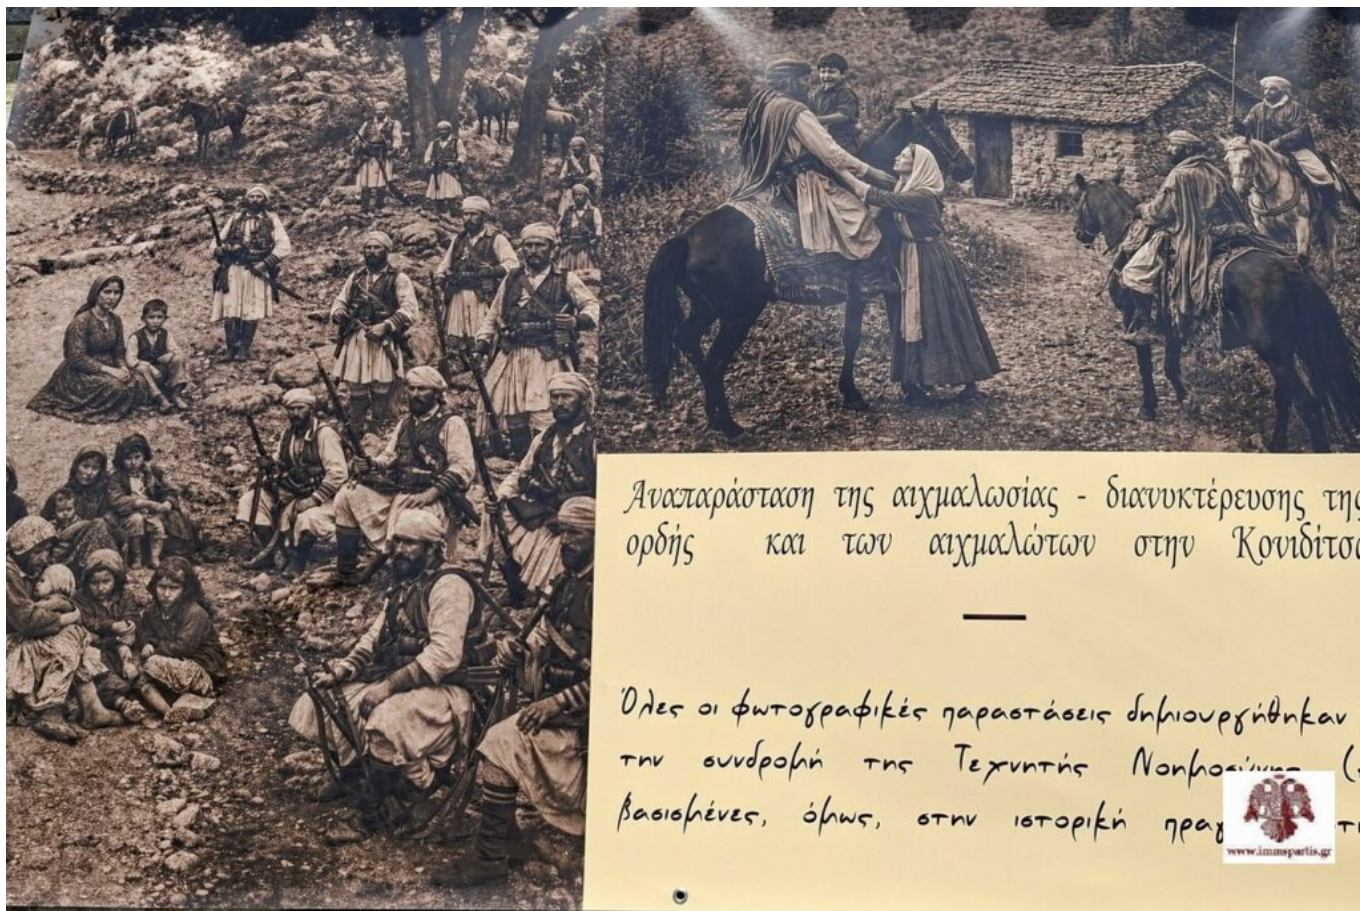 Αναπαράσταση της αιχμαλωσίας - διανυκτέρευσης της
ορδής και των αιχμαλώτων στην Κονιδίτσα
Όλες οι φωτογραφικές παραστάσεις δημιουργήθηκαν
την συνδρομή της Τεχνητής Νοημοσύνης (
βασισμένες, όμως, στην ιστορική
www.immspartis.gr